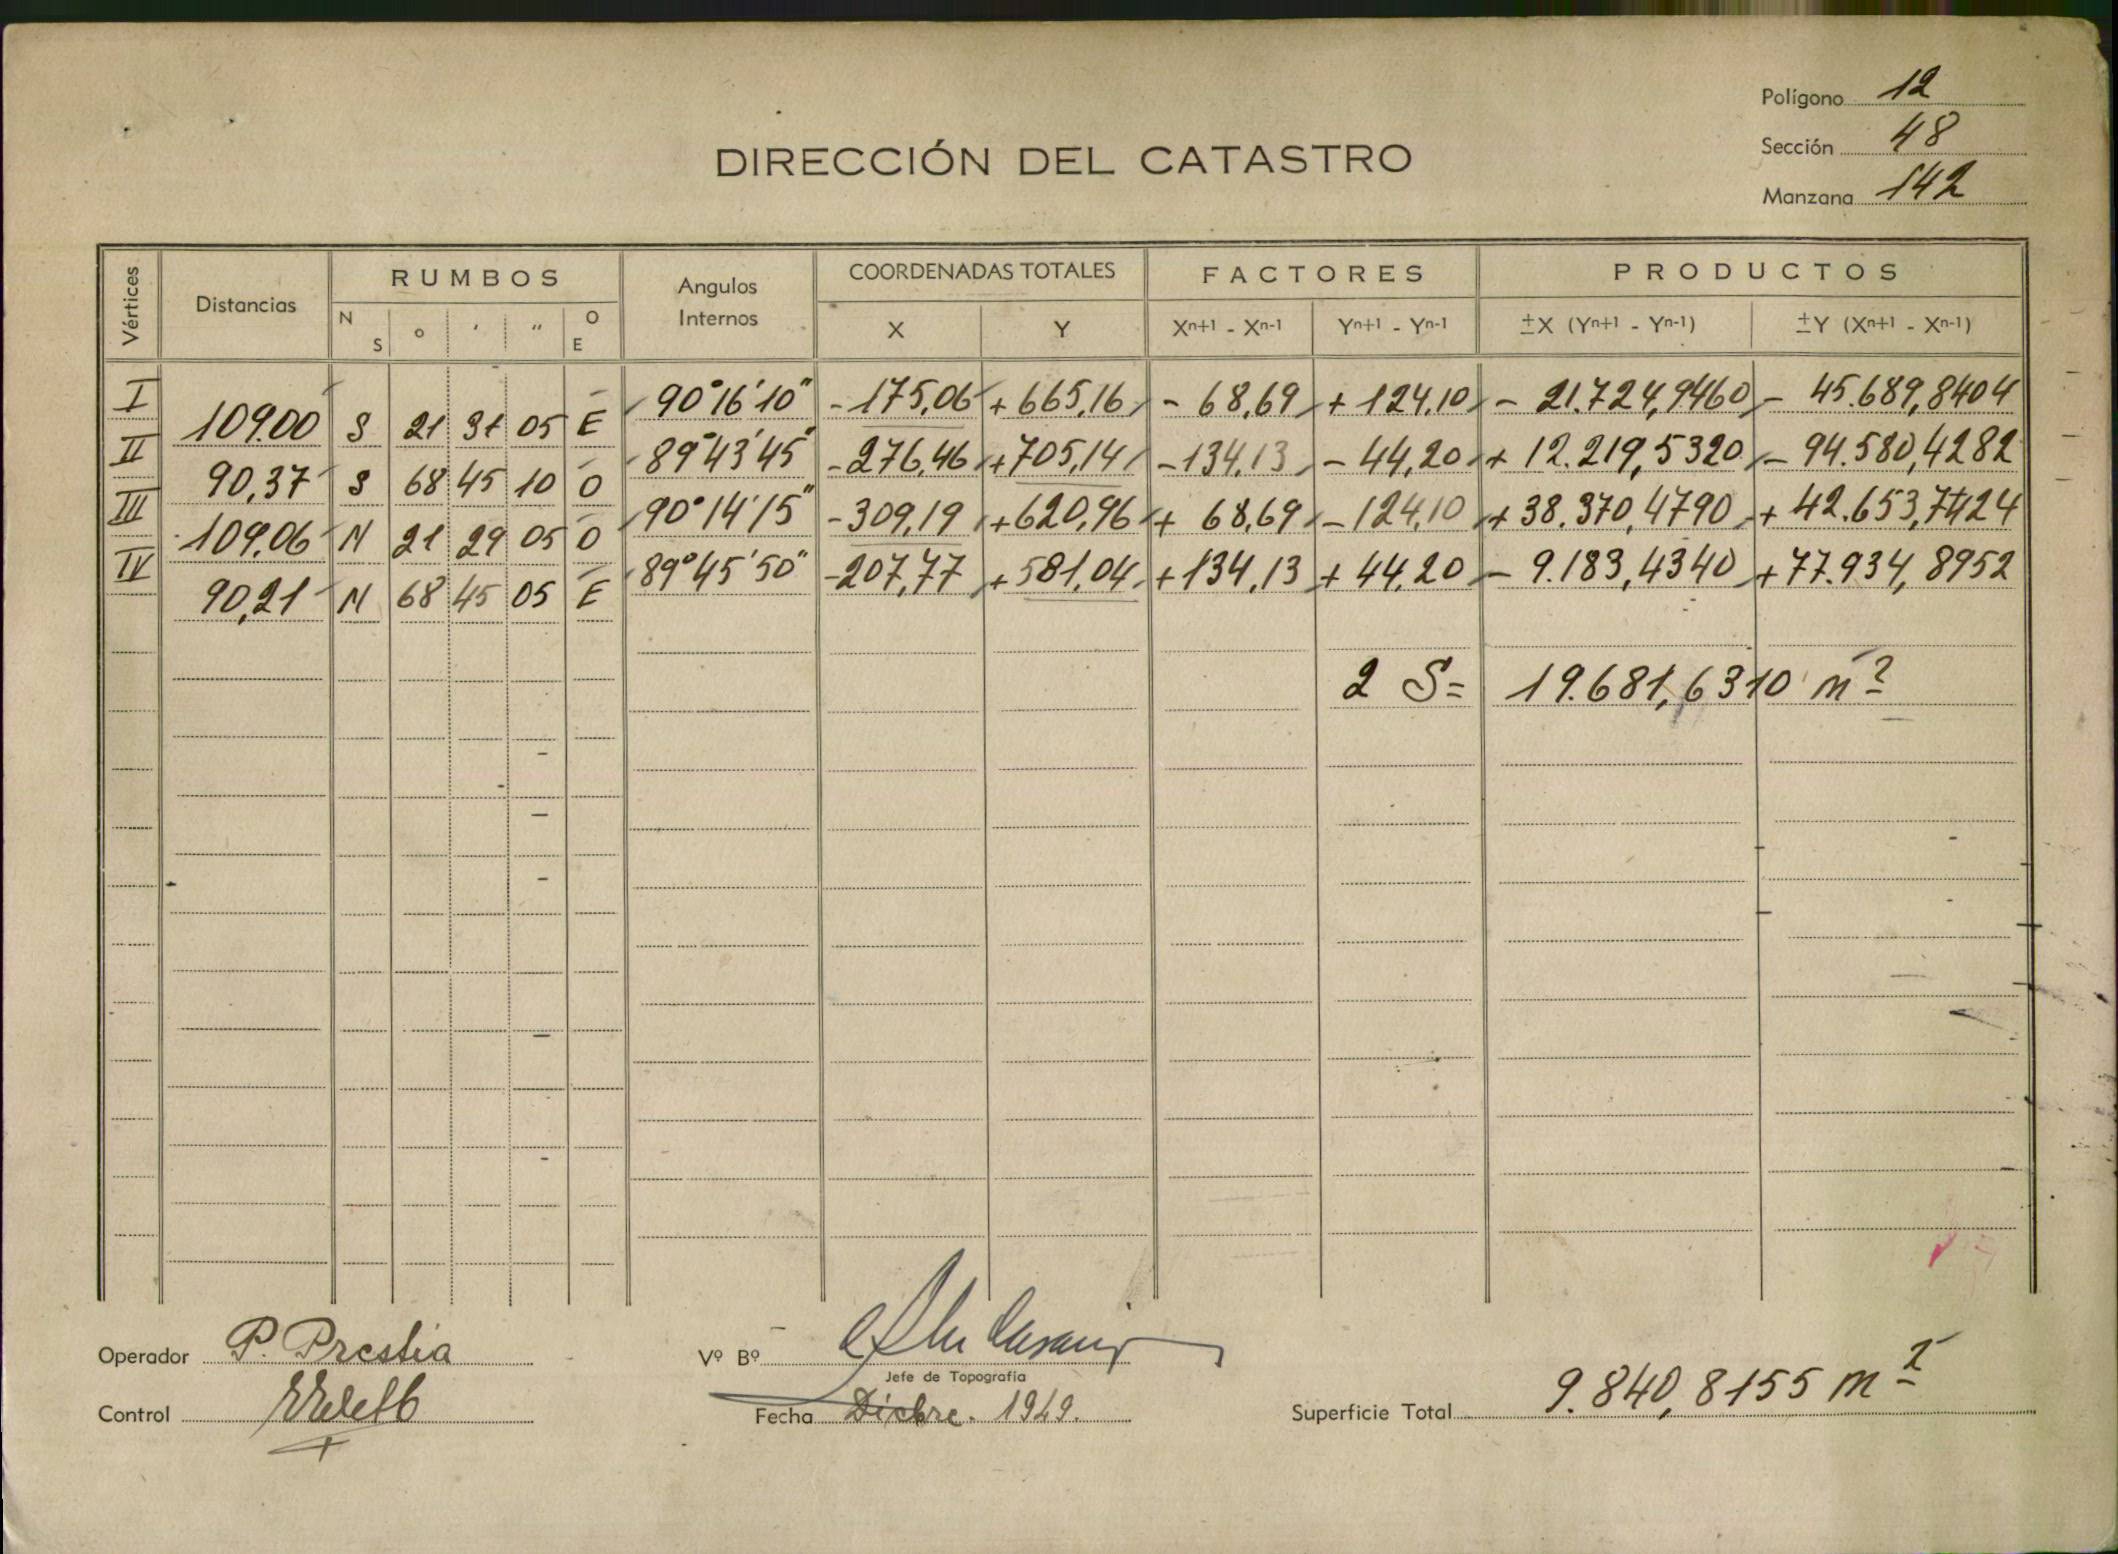 Polígono 12
Sección 48
Manzana 142
DIRECCIÓN DEL CATASTRO
Vértices Distancias RUMBOS Angulos Internos COORDENADAS TOTALES FACTORES PRODUCTOS
N S ° ' " O E X Y Xn+1 - Xn-1 Yn+1 - Yn-1 ±X (Yn+1 - Yn-1) ±Y (Xn+1 - Xn-1)
I 90°16'10" -175,06 +665,16 - 68,69 + 124,10 - 21.724,9460 - 45.689,8404
109.00 S 21 31 05 E
II 89°43'45" -276,46 +705,14 -134,13 - 44,20 + 12.219,5320 - 94.580,4282
90,37 S 68 45 10 O
III 90°14'15" -309,19 +620,96 + 68,69 -124,10 +38.370,4790 + 42.653,7424
109,06 N 21 29 05 O
IV 89°45'50" -207,77 +581,04 +134,13 + 44,20 - 9.183,4340 +77.934,8952
90,21 N 68 45 05 E
2 S= 19.681,6310 m²
Operador P. Prestia
Vº Bº
Jefe de Topografía
Control
Fecha Dicbre. 1949.
Superficie Total 9.840,8155 m²